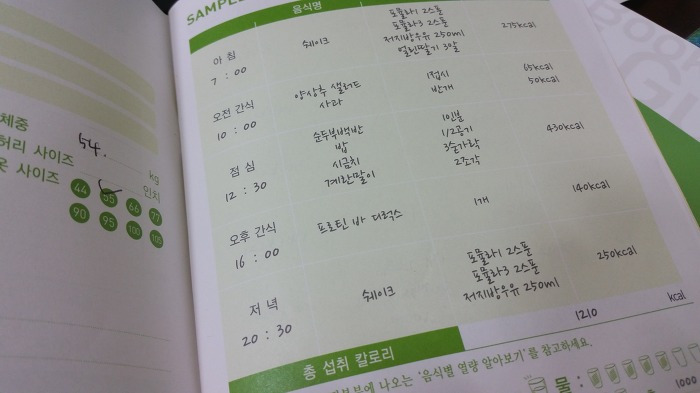 체중
54.
kg
허리 사이즈
인치
옷 사이즈
44 55 66 77
90 95 100 105
SAMPLE
음식명
아침
7 : 00
쉐이크
포뮬라1 2스푼
포뮬라3 2스푼
저지방우유 250ml
얼린딸기 3알
275kcal
오전 간식
10 : 00
양상추 샐러드
사과
1접시
반개
65kcal
50kcal
점심
12 : 30
순두부백반
밥
시금치
계란말이
1인분
1/2공기
3숟가락
2조각
430kcal
오후 간식
16 : 00
프로틴 바 디럭스
1개
140kcal
저녁
20 : 30
쉐이크
포뮬라1 2스푼
포뮬라3 2스푼
저지방우유 250ml
250kcal
총 섭취 칼로리
1210 kcal
나오는 '음식별 열량 알아보기'를 참고하세요.
물 :
1000